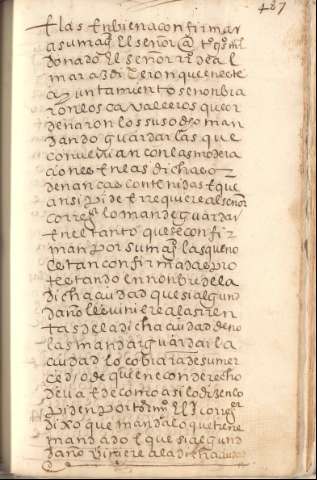 487
t las enbien a confirmar
a su mag. El señor @
donado El señor al
mar a dizeron que en este
ayuntamiento se nonbra
ron los cavalleros que or
denaron los suso dho man
dando guardar las que
convenian con las modera
ciones en las dichas or
denanças contenidas t que
ansi piden t rrequieren al señor
corregor lo mande guardar
en el tanto que se confir
man por su mag. las que no
estan confirmadas pro
testando en nonbre de la
dicha ciudad que si algund
daño le viniere a las rren
tas de la dicha ciudad de no
las mandar guardar la
ciudad lo cobrara de su mer
ced o de quien con derecho
deva t de como asi lo dizen lo
piden por tsmo El corregor
dixo que manda lo que tiene
mandado t que si algund
daño viniere a la dicha ciudad